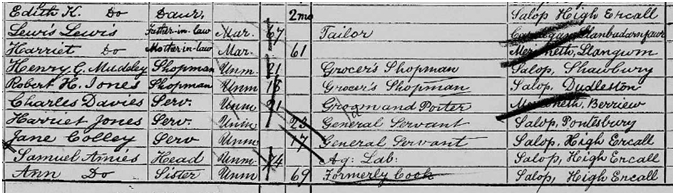 Edith K. Do Daur. 2mo Salop High Ercall
Lewis Lewis Father-in-law Mar. 67 Tailor Cardigan, Llanbadarnfawr
Harriet Do Mother-in-law Mar. 61 Merioneth, Llangwm
Henry G. Mudsley Shopman Unm 21 Grocer's Shopman Salop, Shawbury
Robert H. Jones Shopman Unm 18 Grocer's Shopman Salop, Dudleston
Charles Davies Serv. Unm 21 Groom and Porter Berriew
Harriet Jones Serv. Unm 23 General Servant Salop, Pontesbury
Jane Colley Serv Unm 17 General Servant Salop, High Ercall
Samuel Amies Head Unm 74 Ag: Lab: Salop, High Ercall
Ann Do Sister Unm 69 Formerly Cook Salop, High Ercall